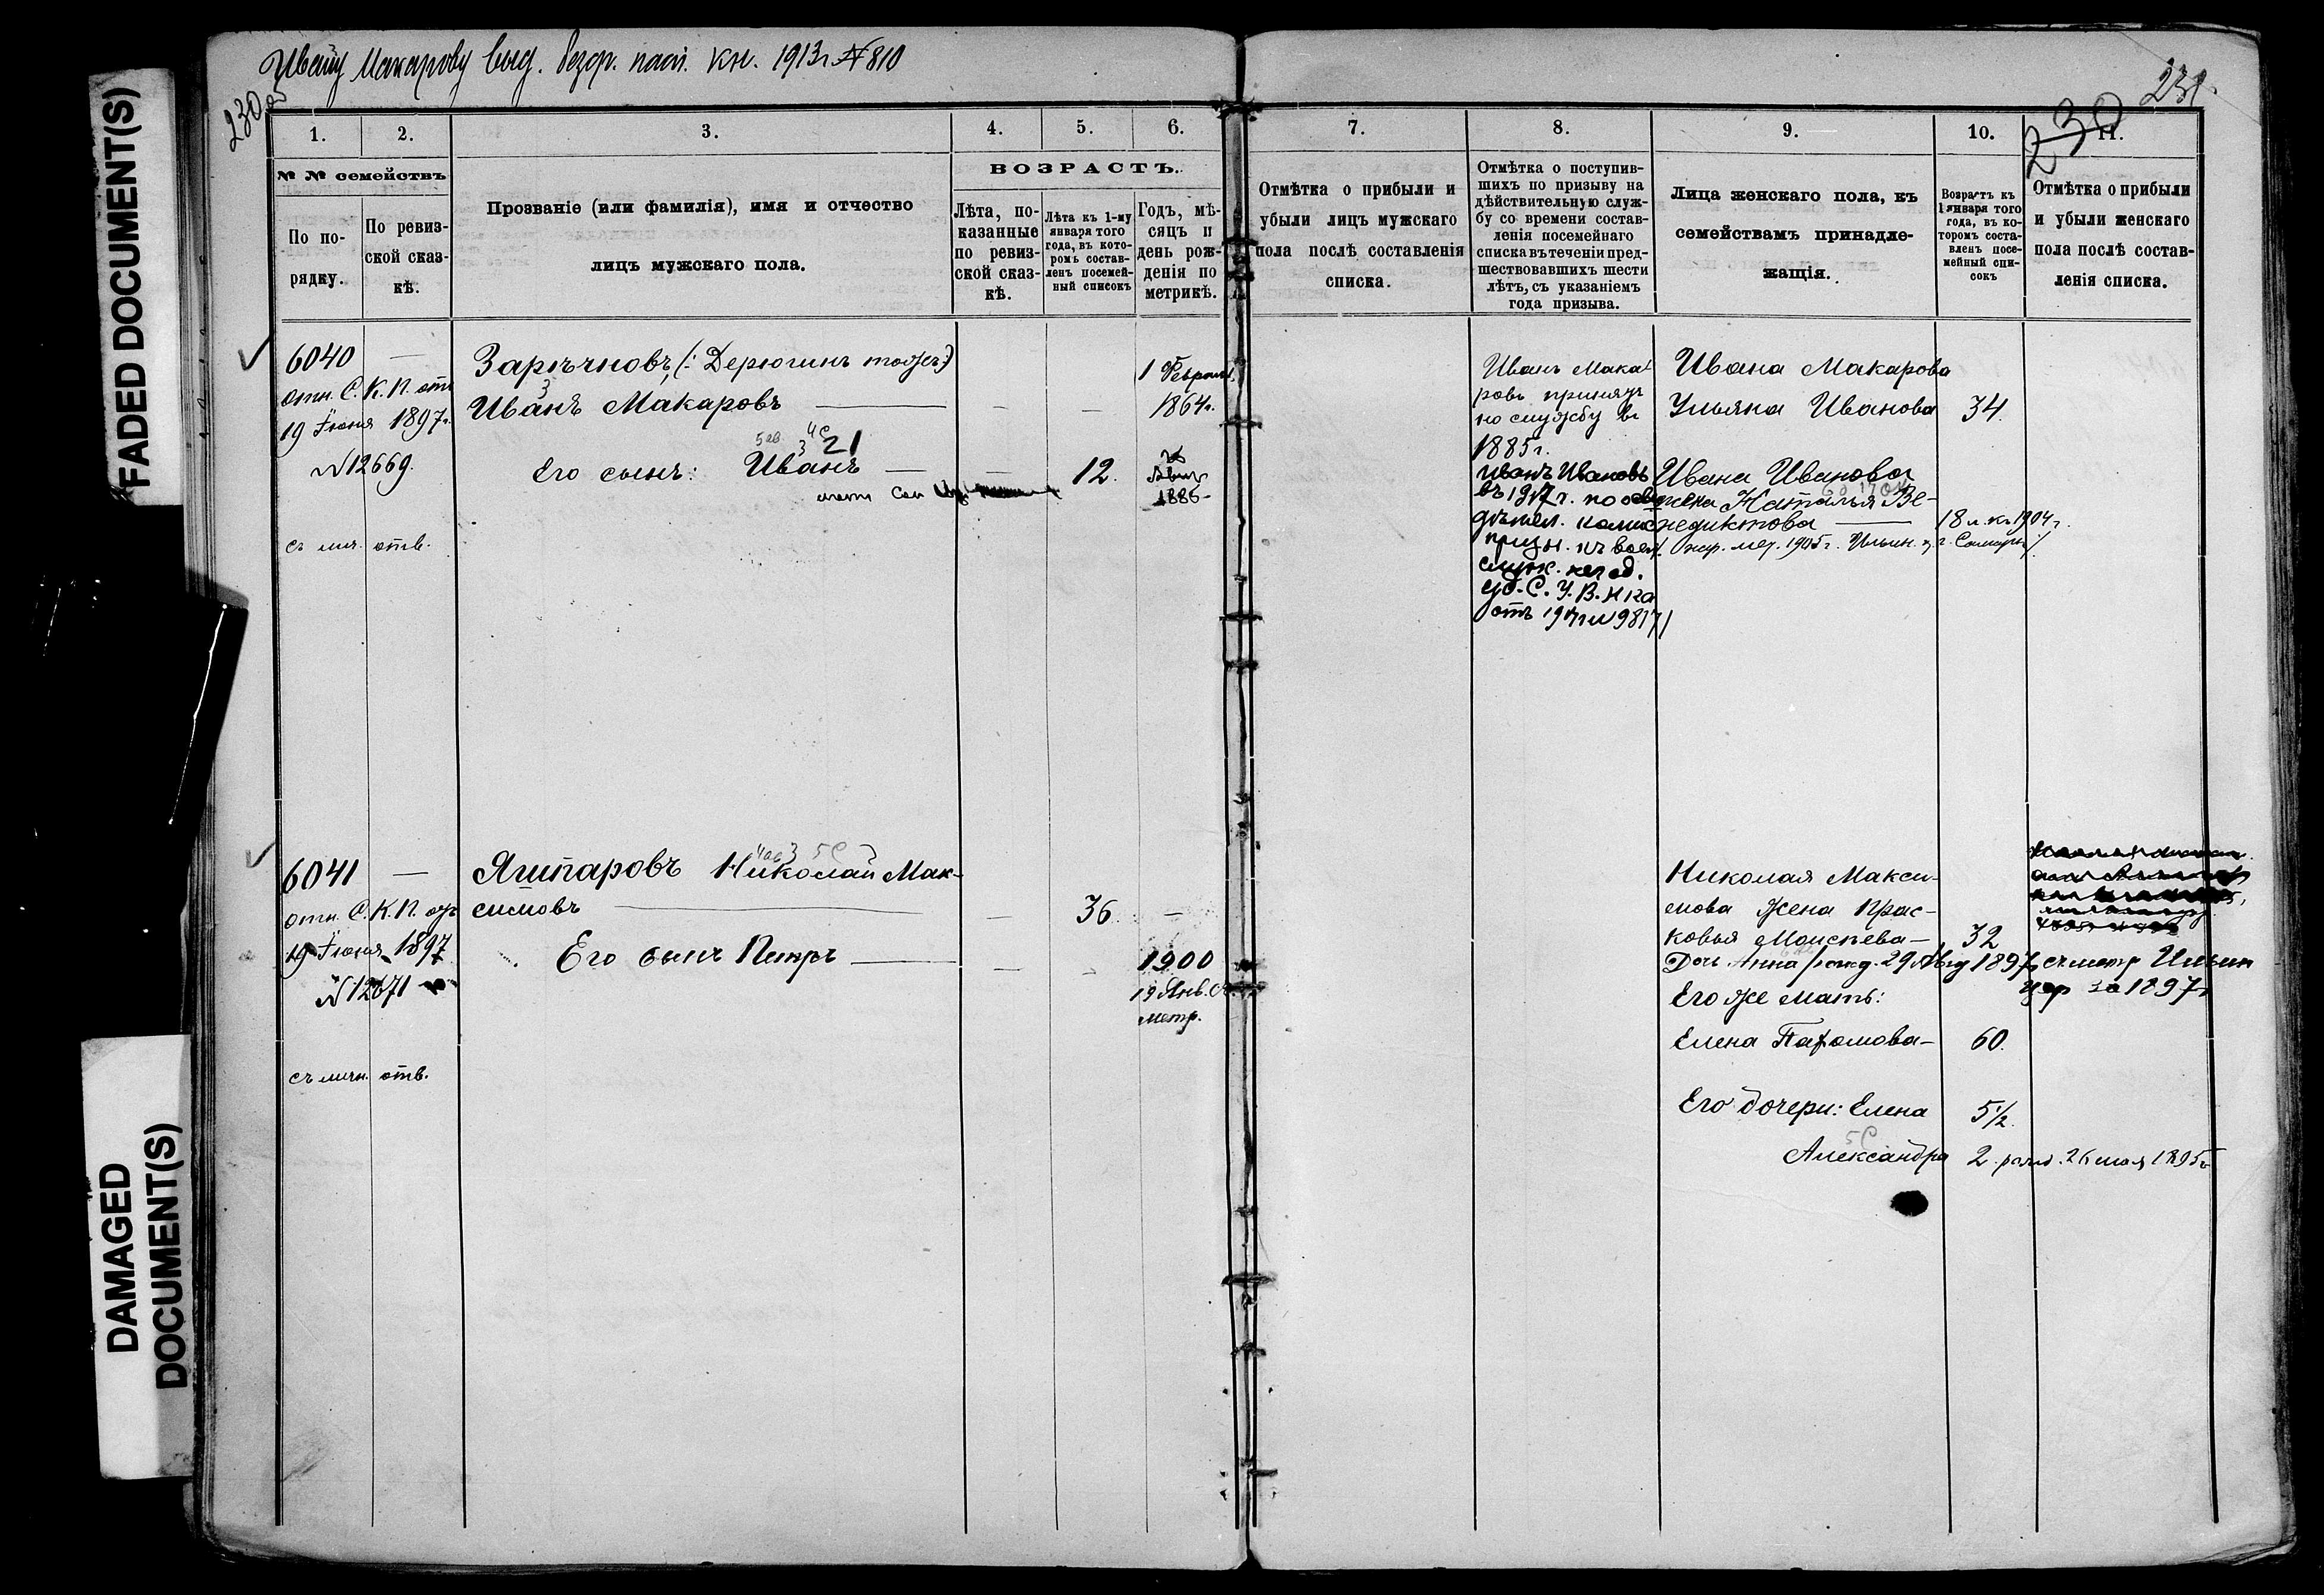 FADED DOCUMENT(S)
DAMAGED
DOCUMENT(S)
Ивану Макарову выд. безср. пасп. кн. 1913г № 810
230 об
231.
230
1.
2.
3.
4.
5.
6.
7.
8.
9.
10.
11.
№ № семействъ
По по-
рядку.
По ревиз-
ской сказ-
кѣ.
Прозваніе (или фамилія), имя и отчество
лицъ мужскаго пола.
ВОЗРАСТЪ.
Лѣта, по-
казанные
по ревиз-
ской сказ-
кѣ.
Лѣта къ 1-му
января того
года, въ кото-
ромъ состав-
ленъ посемей-
ный списокъ
Годъ, мѣ-
сяцъ и
день рож-
денія по
метрикѣ.
Отмѣтка о прибыли и
убыли лицъ мужскаго
пола послѣ составленія
списка.
Отмѣтка о поступив-
шихъ по призыву на
дѣйствительную служ-
бу со времени состав-
ленія посемейнаго
списка въ теченіи пред-
шествовавшихъ шести
лѣтъ, съ указаніемъ
года призыва.
Лица женскаго пола, къ
семействамъ принадле-
жащія.
Возрастъ къ
1 января того
года, въ ко-
торомъ соста-
вленъ посе-
мейный спи-
сокъ
Отмѣтка о прибыли
и убыли женскаго
пола послѣ состав-
ленія списка.
6040 —
отн. С. К. П. отъ
19 Іюня 1897г.
№ 12669.
съ лич. отв.
Зарѣчновъ, (: Дерюгинъ тожъ:)
3
Иванъ Макаровъ — — —
1 Февраля
1864г.
5 ав. 3 4 С 21
Его сынъ: Иванъ — — 12.
1886
Иванъ Мака-
ровъ принятъ
на службу въ
1885г.
Иванъ Ивановъ
въ 1917г. по сви
дѣтел. комис
призн. къ воен.
служ. негод.
С. У. В. Н ка
отъ 1917г № 9817/
Ивана Макарова
Ульяна Иванова 34.
Ивана Иванова
жена Наталья Ве-
недиктова — 18 л. къ 1904г.
метр. 1905г. Ильин. ц. г. Самары/.
6041 —
отн. С. К. П. отъ
19 Іюня 1897
№ 12671
съ личн. отв.
4 ав 3 5 С
Яшпаровъ Николай Мак-
симовъ — — 36. —
Его сынъ Петръ — — — 1900
19 Янв. съ
метр.
Николая Макси-
мова жена Прас-
ковья Моисѣева — 32
Дочь Анна рожд. 29 Авг 1897г съ метр Ильин
цер за 1897г
Его же мать:
Елена Пафомова — 60.
Его дочери: Елена 5½.
5 С
Александра 2. рожд. 26 мая 1895г